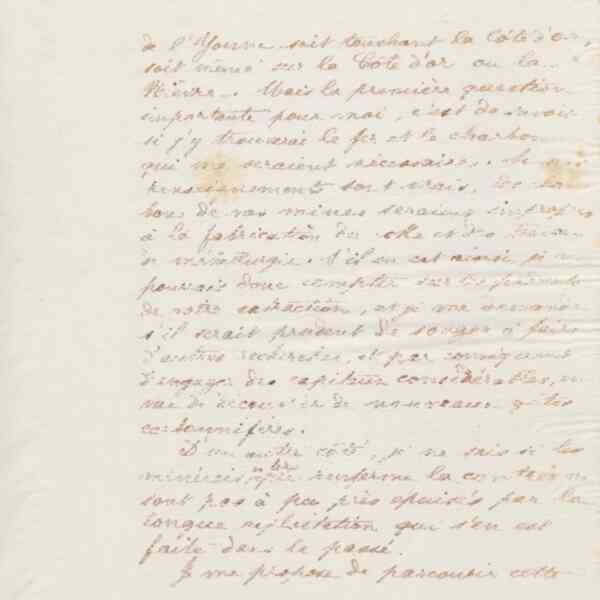 de l'Yonne soit touchant la Côte d'or,
soit même sur la Côte d'or ou la
Nièvre. Mais la première question
importante pour moi, c'est de savoir
si j'y trouverai le fer et le charbon
qui me seraient nécessaires. Si
renseignements sont vrais,
de vos mines seraient
à la fabrication du coke et des
métallurgie. S'il en est ainsi, je
pouvais donc compter sur les
de votre extraction, et je me demande
s'il serait prudent de songer à faire
d'autres recherches, et par conséquent
d'engager des capitaux considérables, en
vue de découvrir de nouveaux gîtes
carbonifères.
D'un autre côté, je ne sais si les
minerais que renferme la contrée ne
sont pas à peu près épuisés par la
longue exploitation qui s'en est
faite dans le passé.
Je me propose de parcourir cette